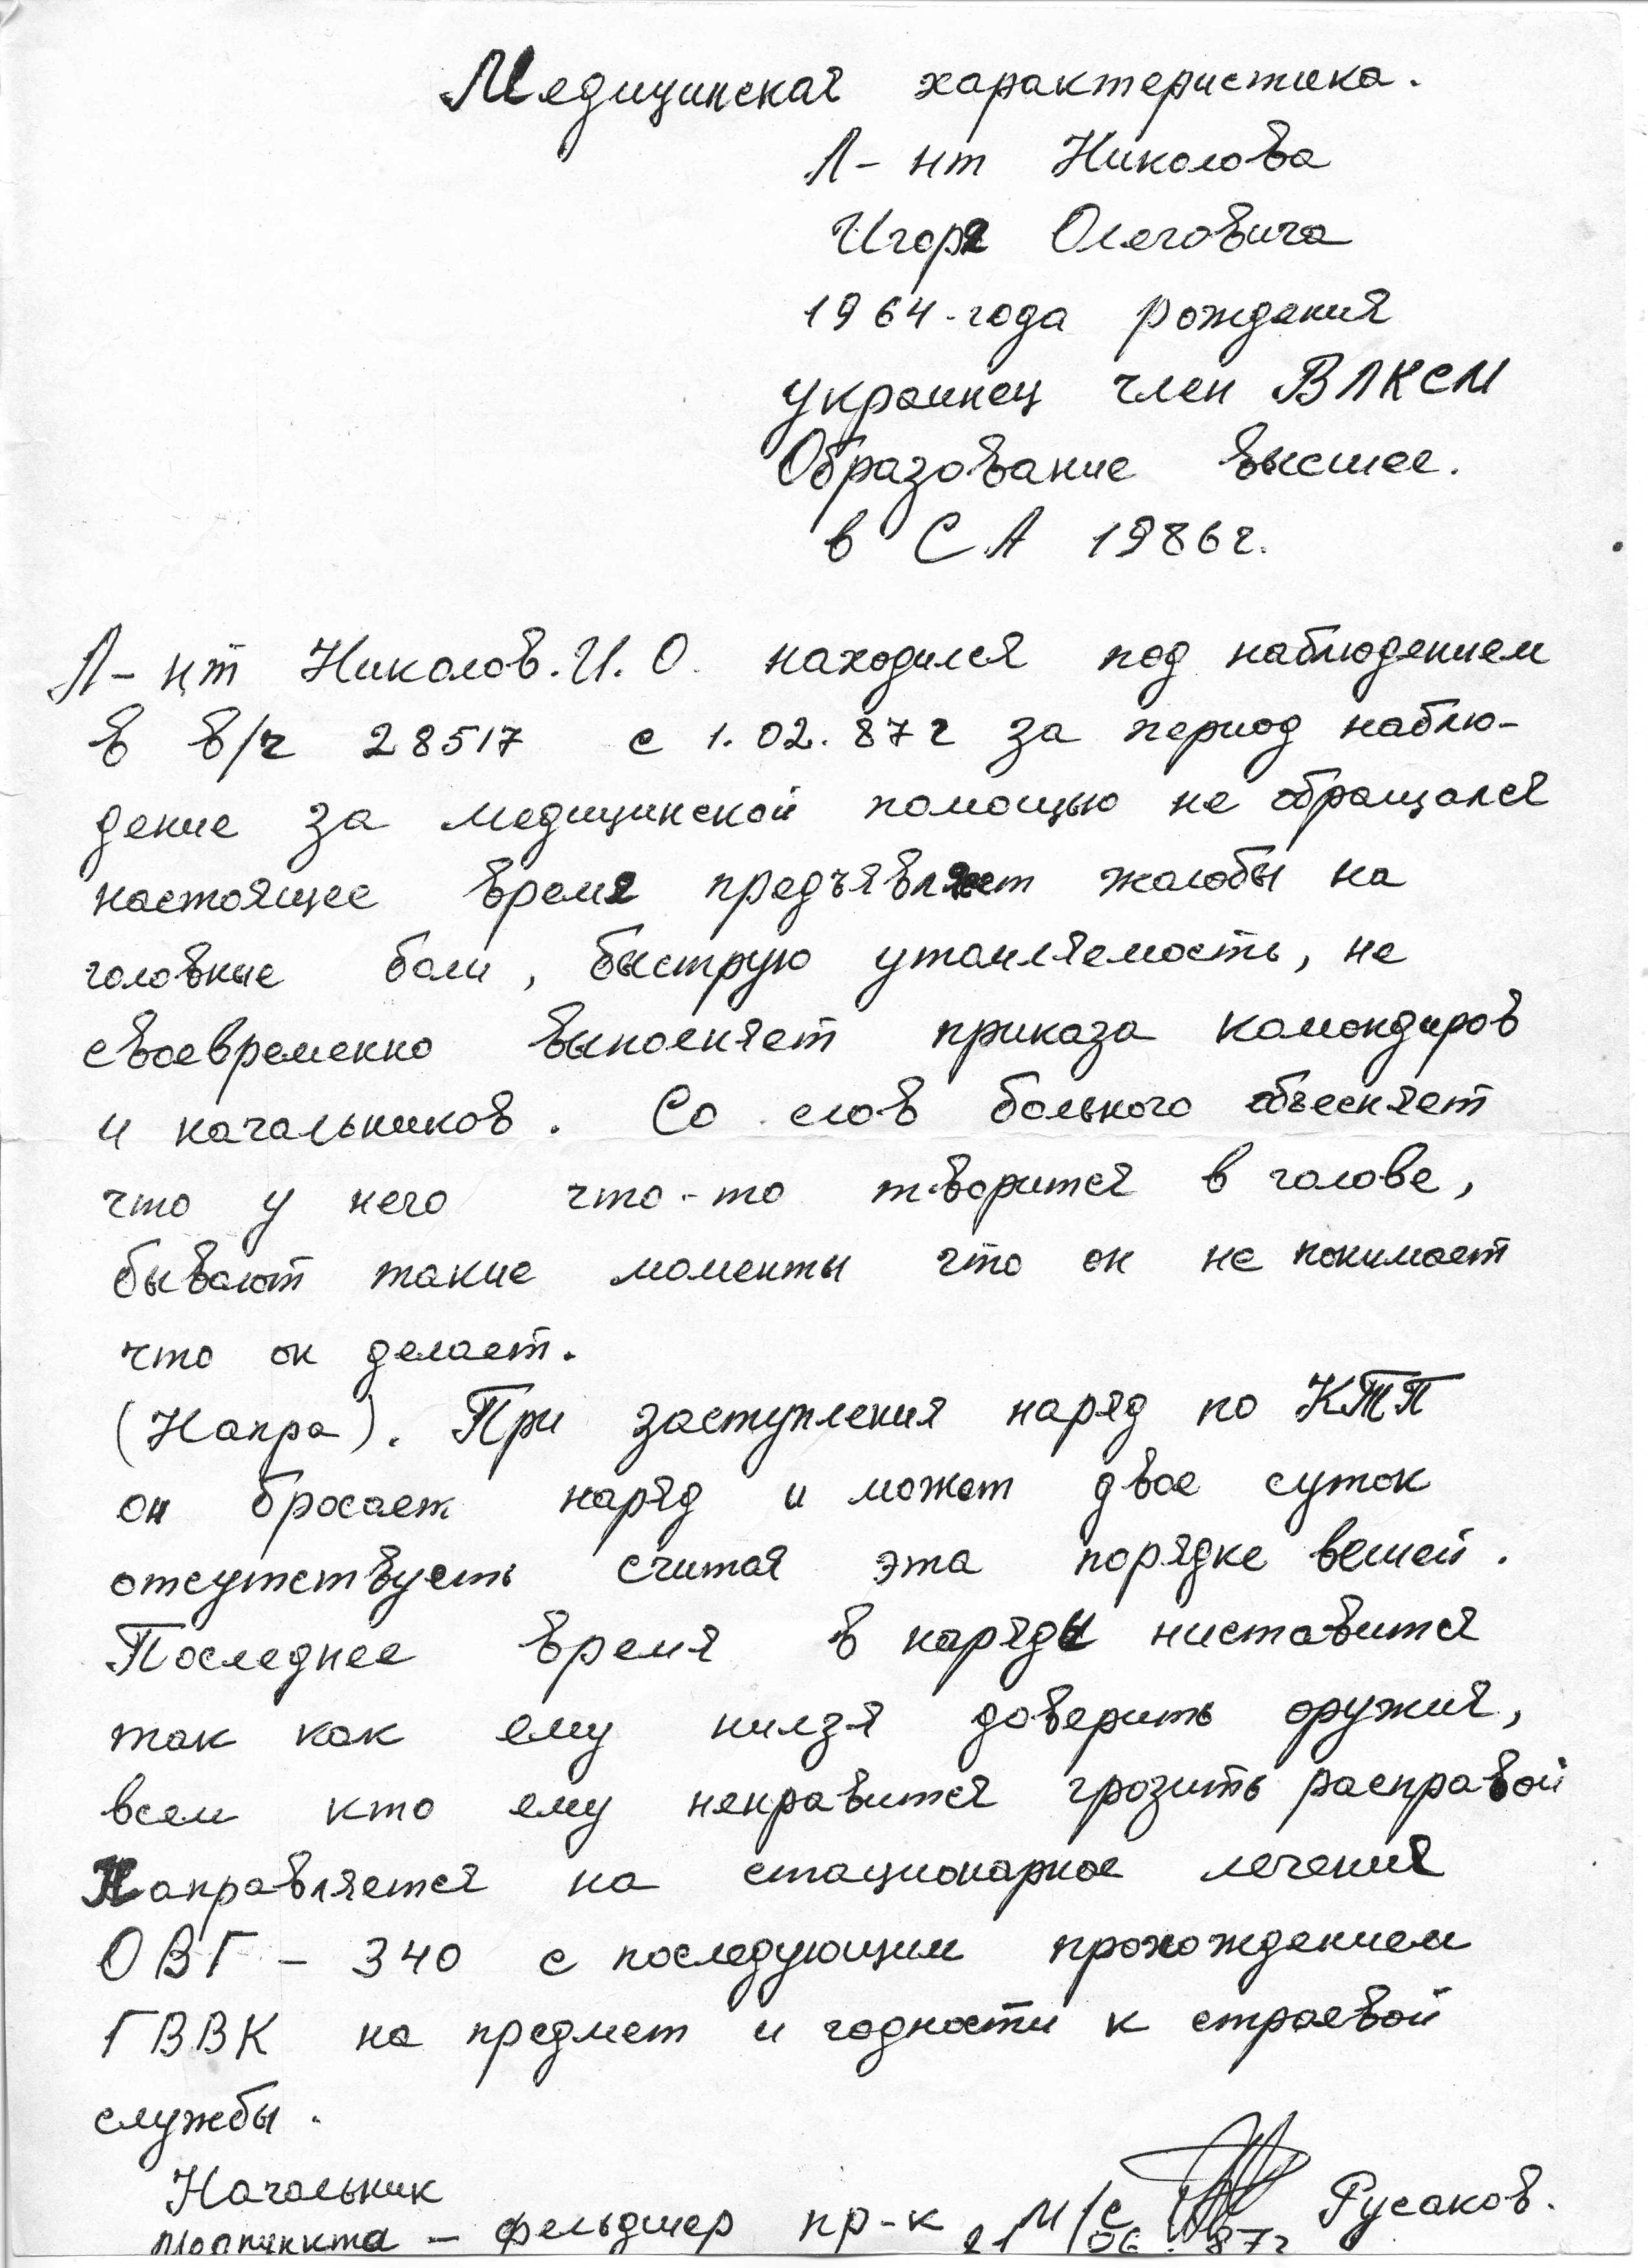 Медицинская характеристика.
Л-нт Николова
Игоря Олеговича
1964-года рождения
украинец член ВЛКСМ
Образование высшее.
в СА 1986г.
Л-нт Николов.И.О. находился под наблюдением
в в/ч 28517 с 1.02.87г за период наблю-
дение за медицинской помощью не обращался
настоящее время предъявляет жалобы на
головные боли, быструю утомляемость, не
своевременно выполняет приказа командиров
и начальников. Со слов больного объесняет
что у него что-то творится в голове,
бывают такие моменты что он не понимает
что он делает.
(Напра). При заступления наряд по КТП
он бросает наряд и может двое суток
отсутствуеть считая эта порядке вешей.
Последнее время в наряды ниставится
так как ему нилзя доверить оружия,
всем кто ему ненравится грозить расправой
Направляется на стационарное лечения
ОВГ - 340 с последующим прохождением
ГВВК на предмет и годности к строевой
службы.
Начальник
Медпункта - фельдшер пр-к м/с Русаков.
21 06. 87г